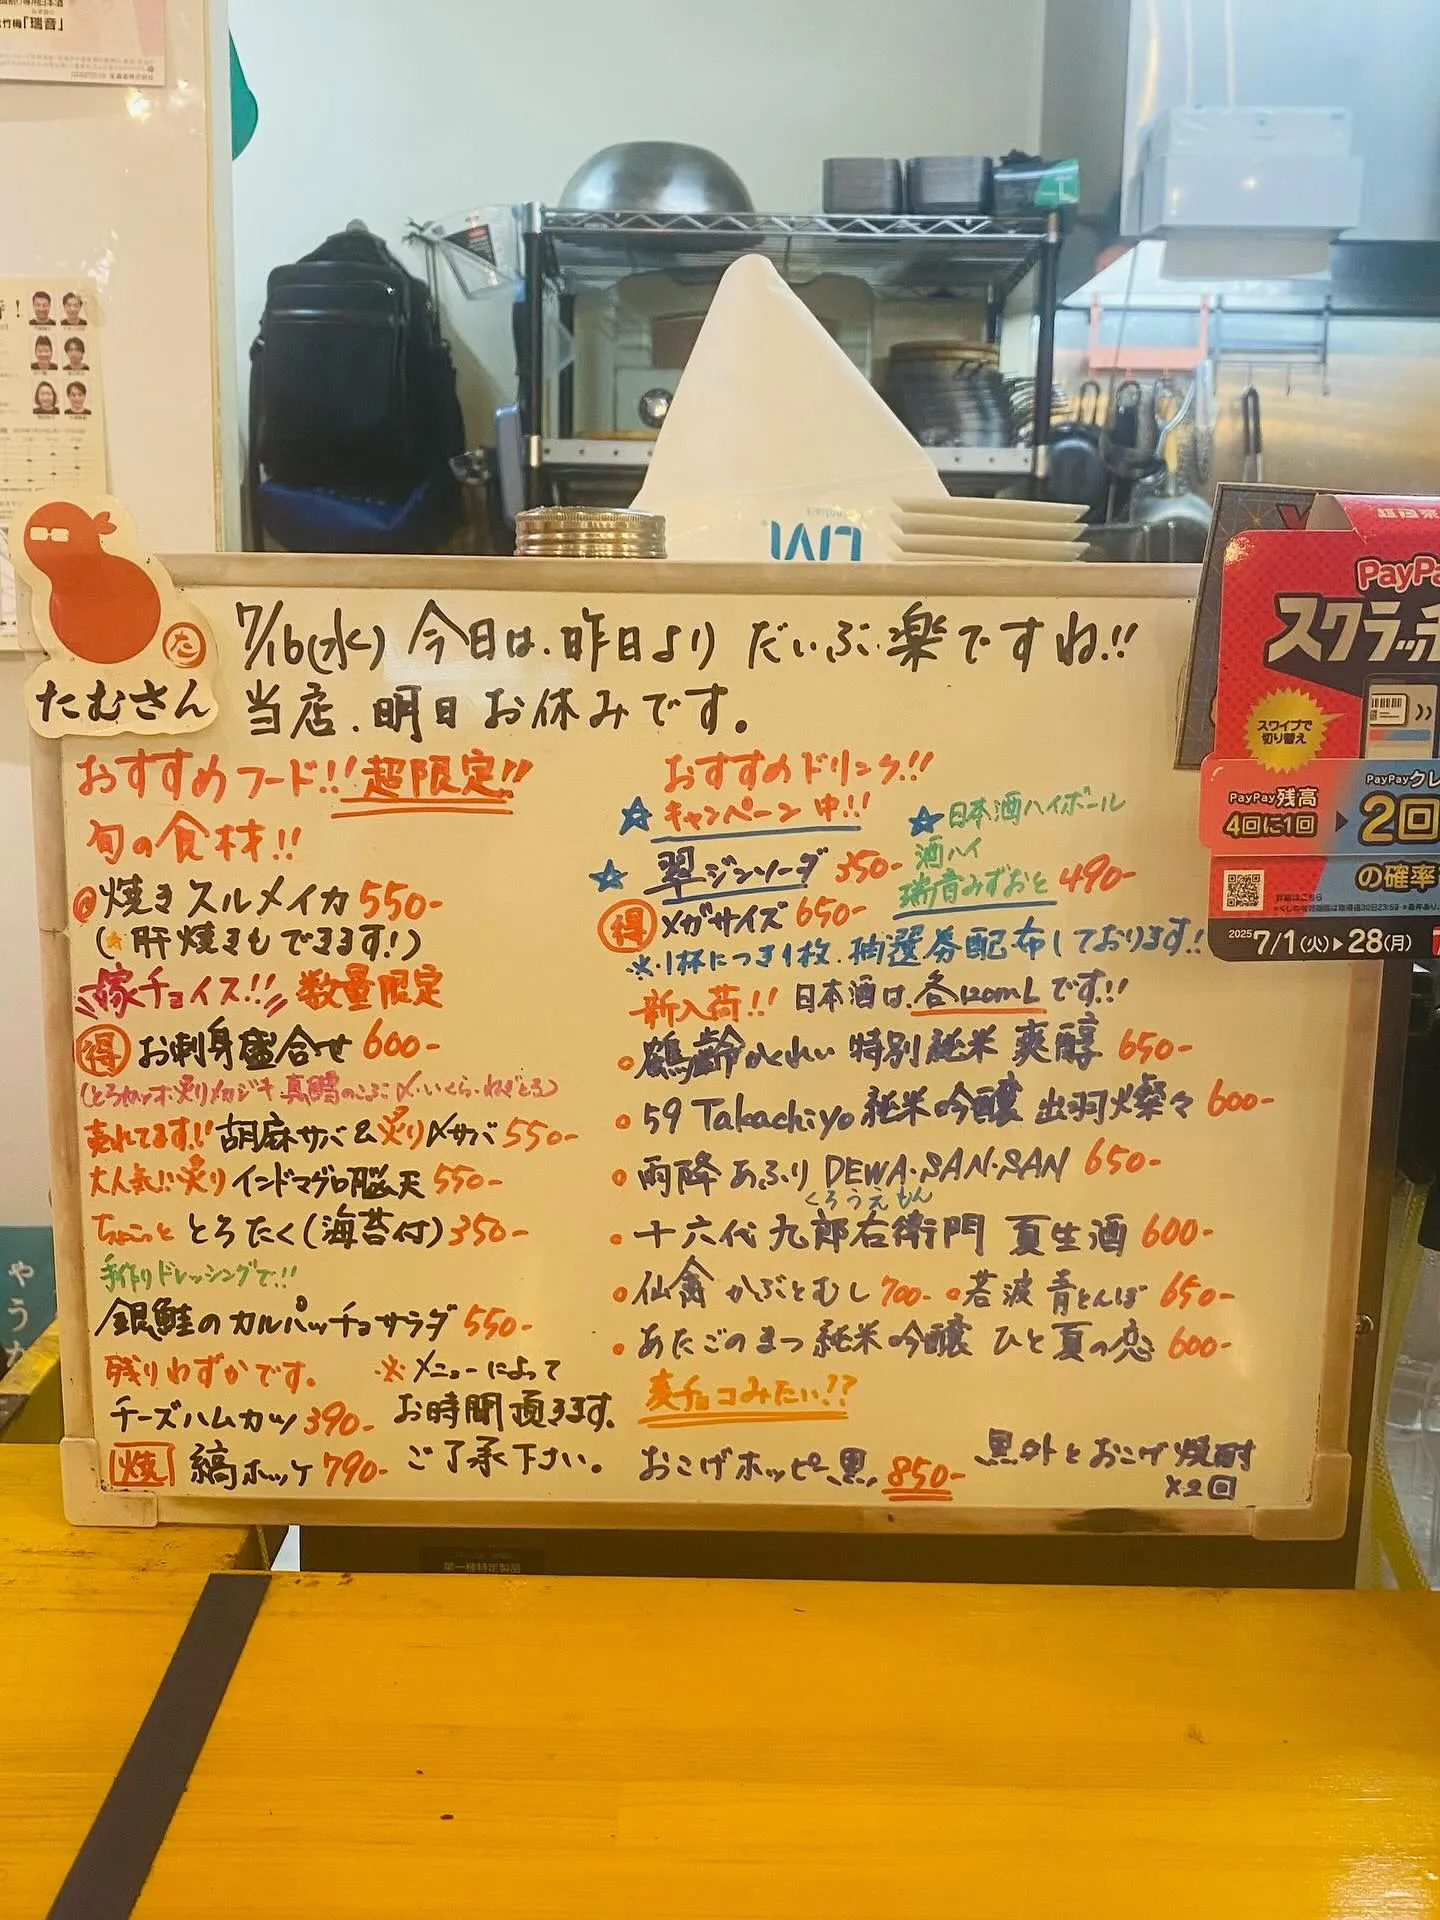 竹梅「瑞音」
たむさん
7/16(水) 今日は、昨日より だいぶ楽ですね!!
当店、明日お休みです。
おすすめフード!! 超限定!!
旬の食材!!
焼きスルメイカ 550-
(★肝焼きもできます!)
嫁チョイス!! 数量限定
得 お刺身盛合せ 600-
(とろカツオ 炙りメカジキ 真鯛のこぶ〆・いくら・ねぎとろ)
売れてます!! 胡麻サバ&炙り〆サバ 550-
大人気!! 炙り インドマグロ脳天 550-
ちょこっと とろたく(海苔付) 350-
手作りドレッシングで!!
銀鮭のカルパッチョサラダ 550-
残りわずかです。
チーズハムカツ 390-
焼 縞ホッケ 790-
※メニューによって
お時間頂きます。
ご了承下さい。
おすすめドリンク!!
☆キャンペーン中!!
☆翠ジンソーダ 350-
得 メガサイズ 650-
☆日本酒ハイボール
酒ハイ
瑞音みずおと 490-
※1杯につき1枚、抽選券配布しております!
新入荷!! 日本酒は、各120mLです!!
鶴齢かくれい 特別純米 爽醇 650-
59 Takachiyo 純米吟醸 出羽燦々 600-
雨降 あふり DEWA・SAN・SAN 650-
くろうえもん
十六代 九郎右衛門 夏生酒 600-
仙禽 かぶとむし 700- 若波 青とんぼ 650-
あたごのまつ 純米吟醸 ひと夏の恋 600-
麦チョコみたい!?
おこげホッピー黒 850-
黒外とおこげ焼酎
×2回
PayPa
スクラッチ
スワイプで
切り替え
PayPay残高
4回に1回
PayPayクレ
2回
の確率
2025 7/1(火)▶28(月)
第一種特定製品
やう